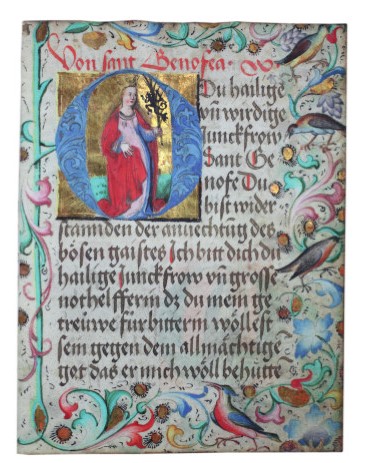 Von sant Genofea.
O Du hailige
vn̄ wirdige
Junckfrow
Sant Ge
nofe Du
bist wider
standen der anuechtūg des
bösen gaistes Ich bitt dich du
hailige Junckfrow vn̄ grosse
nothelfferin dz du mein ge
treüwe fürbitterin wöllest
sein gegen dem allmächtige
got das er mich wöll behütte